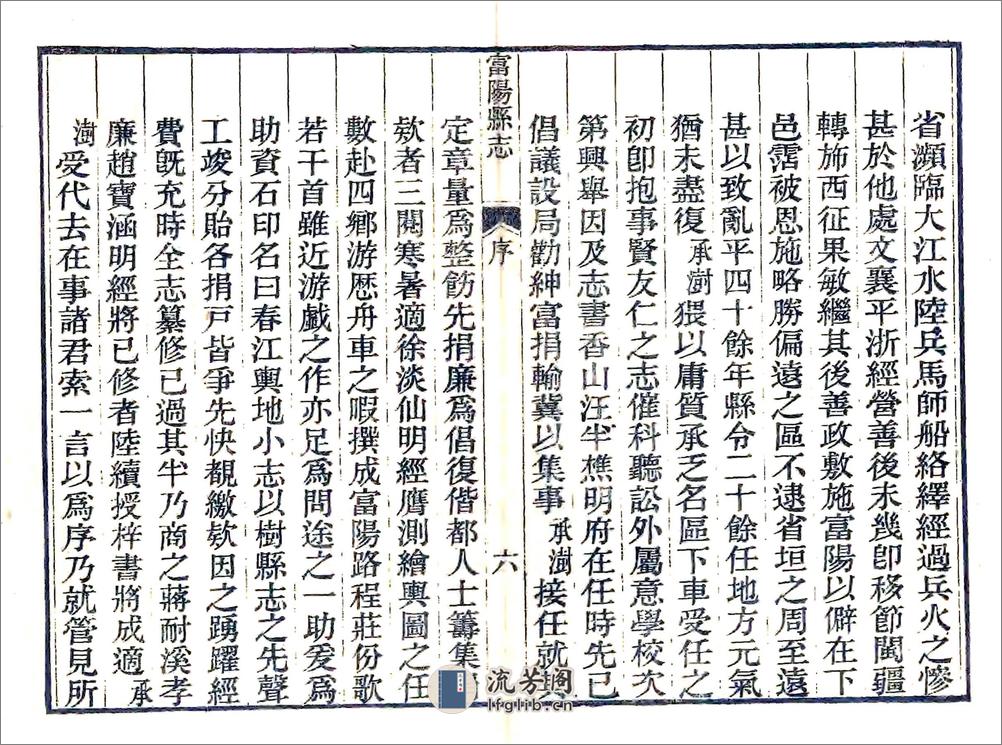 省瀕臨大江水陸兵馬師船絡繹經過兵火之慘
甚於他處文襄平浙經營善後未幾卽移節閩疆
轉施西征果敏繼其後善政敷施富陽以僻在下
邑霑被恩施略勝偏遠之區不逮省垣之周至遠
甚以致亂平四十餘年縣令二十餘任地方元氣
猶未盡復承澍猥以庸質承乏名區下車受任之
初卽抱事賢友仁之志催科聽訟外屬意學校次
第興舉因及志書香山汪半樵明府在任時先已
倡議設局勸紳富捐輸冀以集事承澍接任就
富陽縣志
序
六
定章量爲整飭先捐廉爲倡復偕都人士籌集
欸者三閱寒暑適徐淡仙明經膺測繪輿圖之任
數赴四鄉游歷舟車之暇撰成富陽路程莊份歌
若干首雖近游戲之作亦足爲問途之一助爰爲
助資石印名曰春江輿地小志以樹縣志之先聲
工竣分貽各捐戸皆爭先快覩繳欸因之踴躍經
費旣充時全志纂修已過其半乃商之蔣耐溪孝
廉趙寶涵明經將已修者陸續授梓書將成適承
澍受代去在事諸君索一言以爲序乃就管見所
流芳閣
lfglib.cn